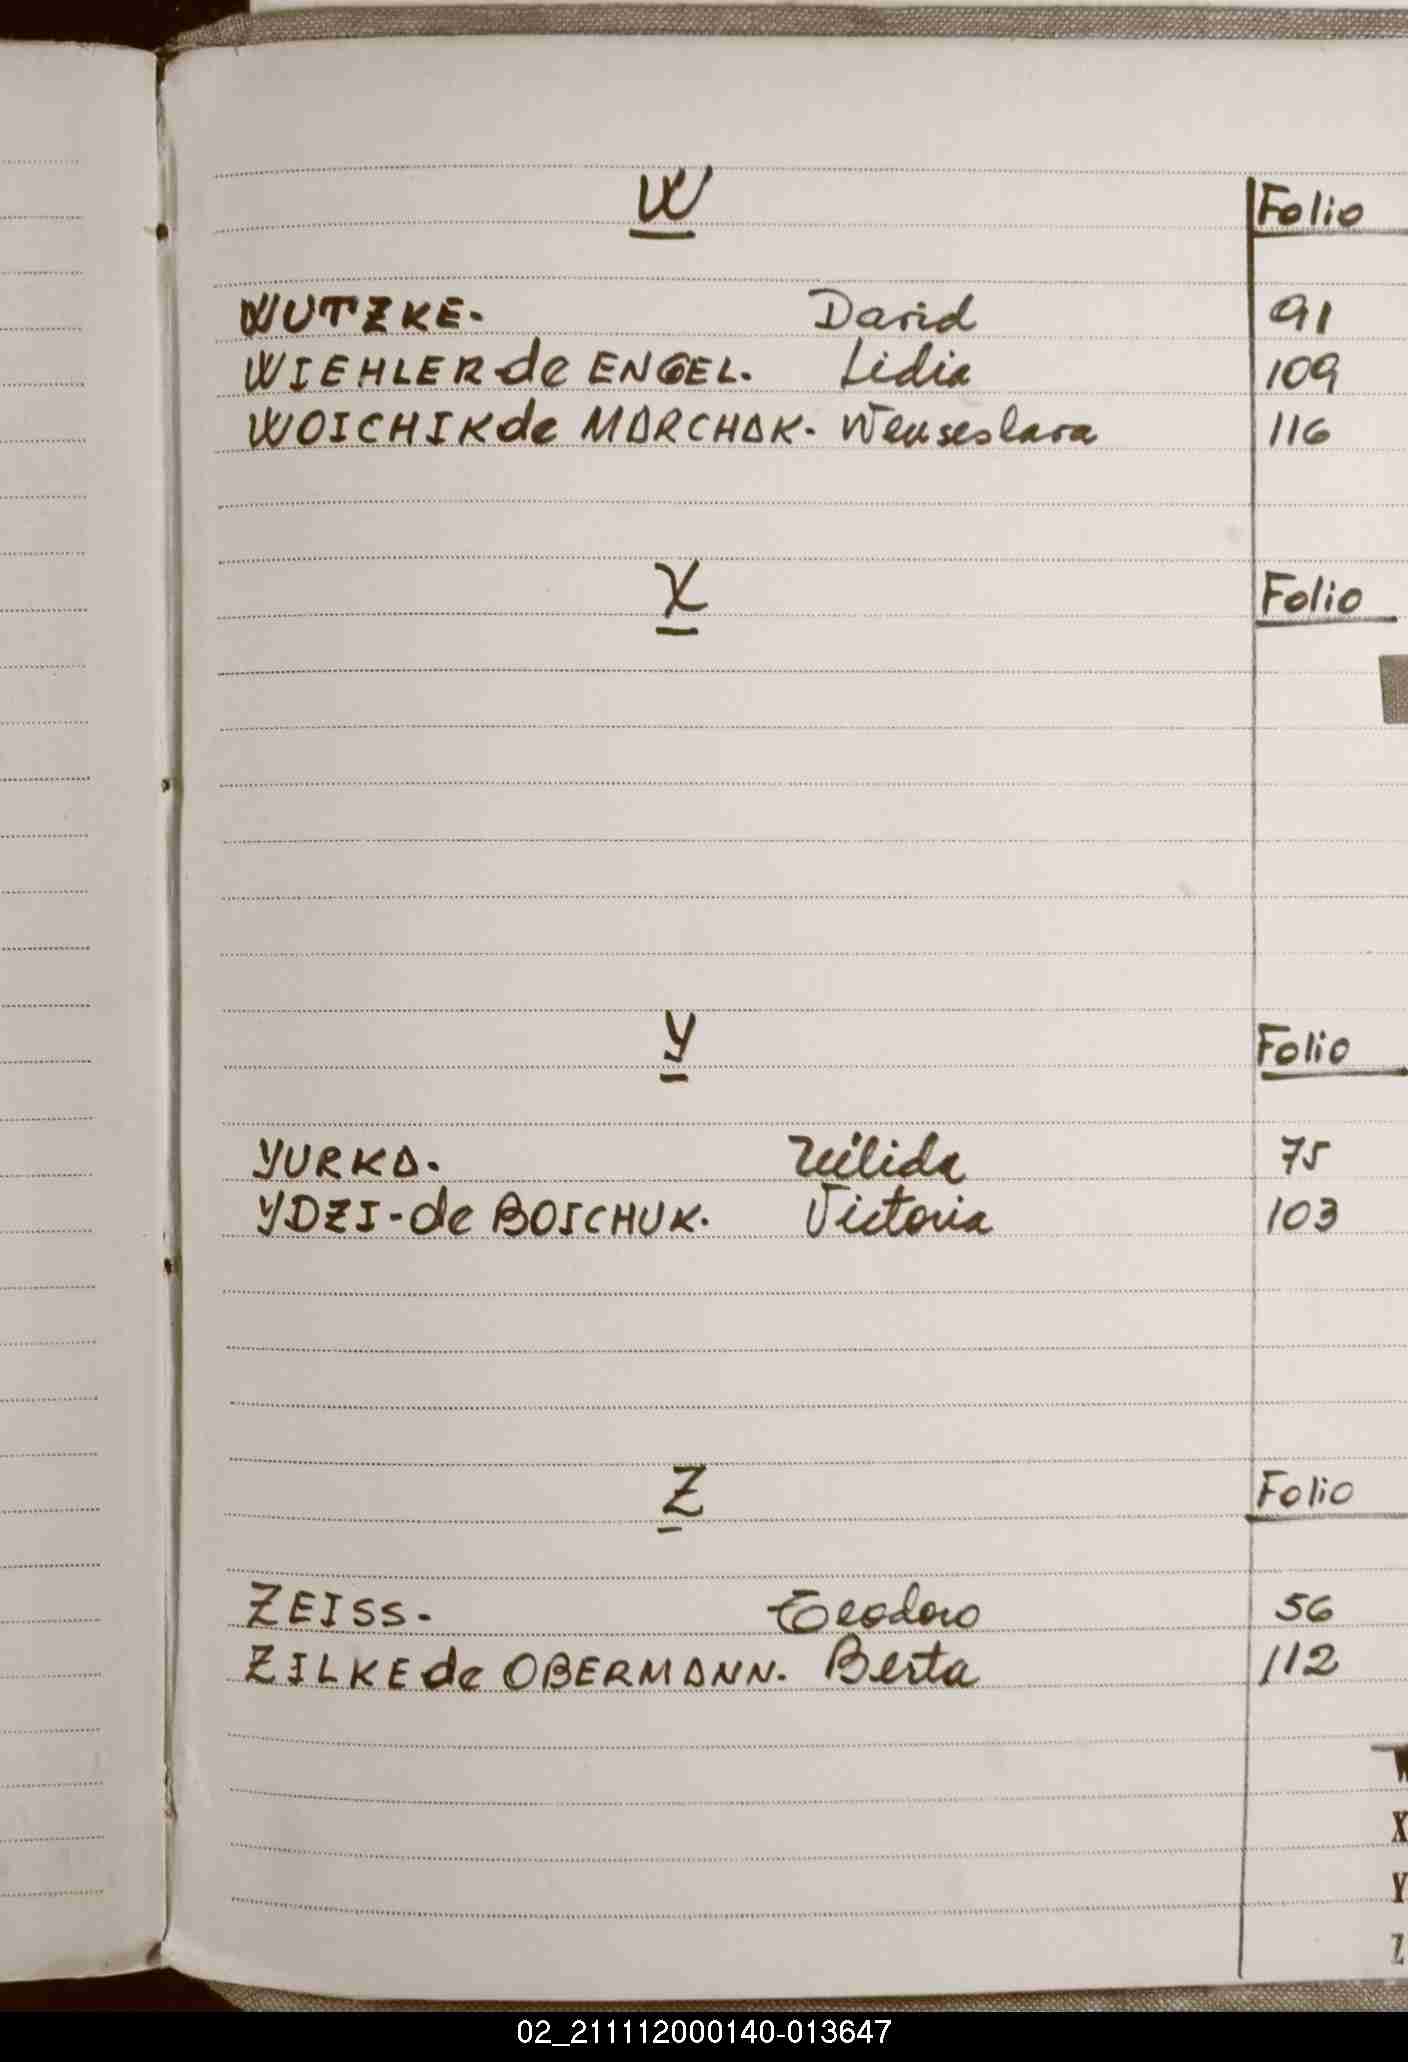 W Folio
WUTZKE. David 91
WIEHLER de ENGEL. Lidia 109
WOICHIK de MARCHAK. Wenseslava 116
X Folio
Y Folio
YURKA. 75
YDZI - de BOICHUK. Victoria 103
Z Folio
ZEISS. Teodoro 56
ZILKE de OBERMANN. Berta 112
W
X
Y
Z
02_211112000140-013647